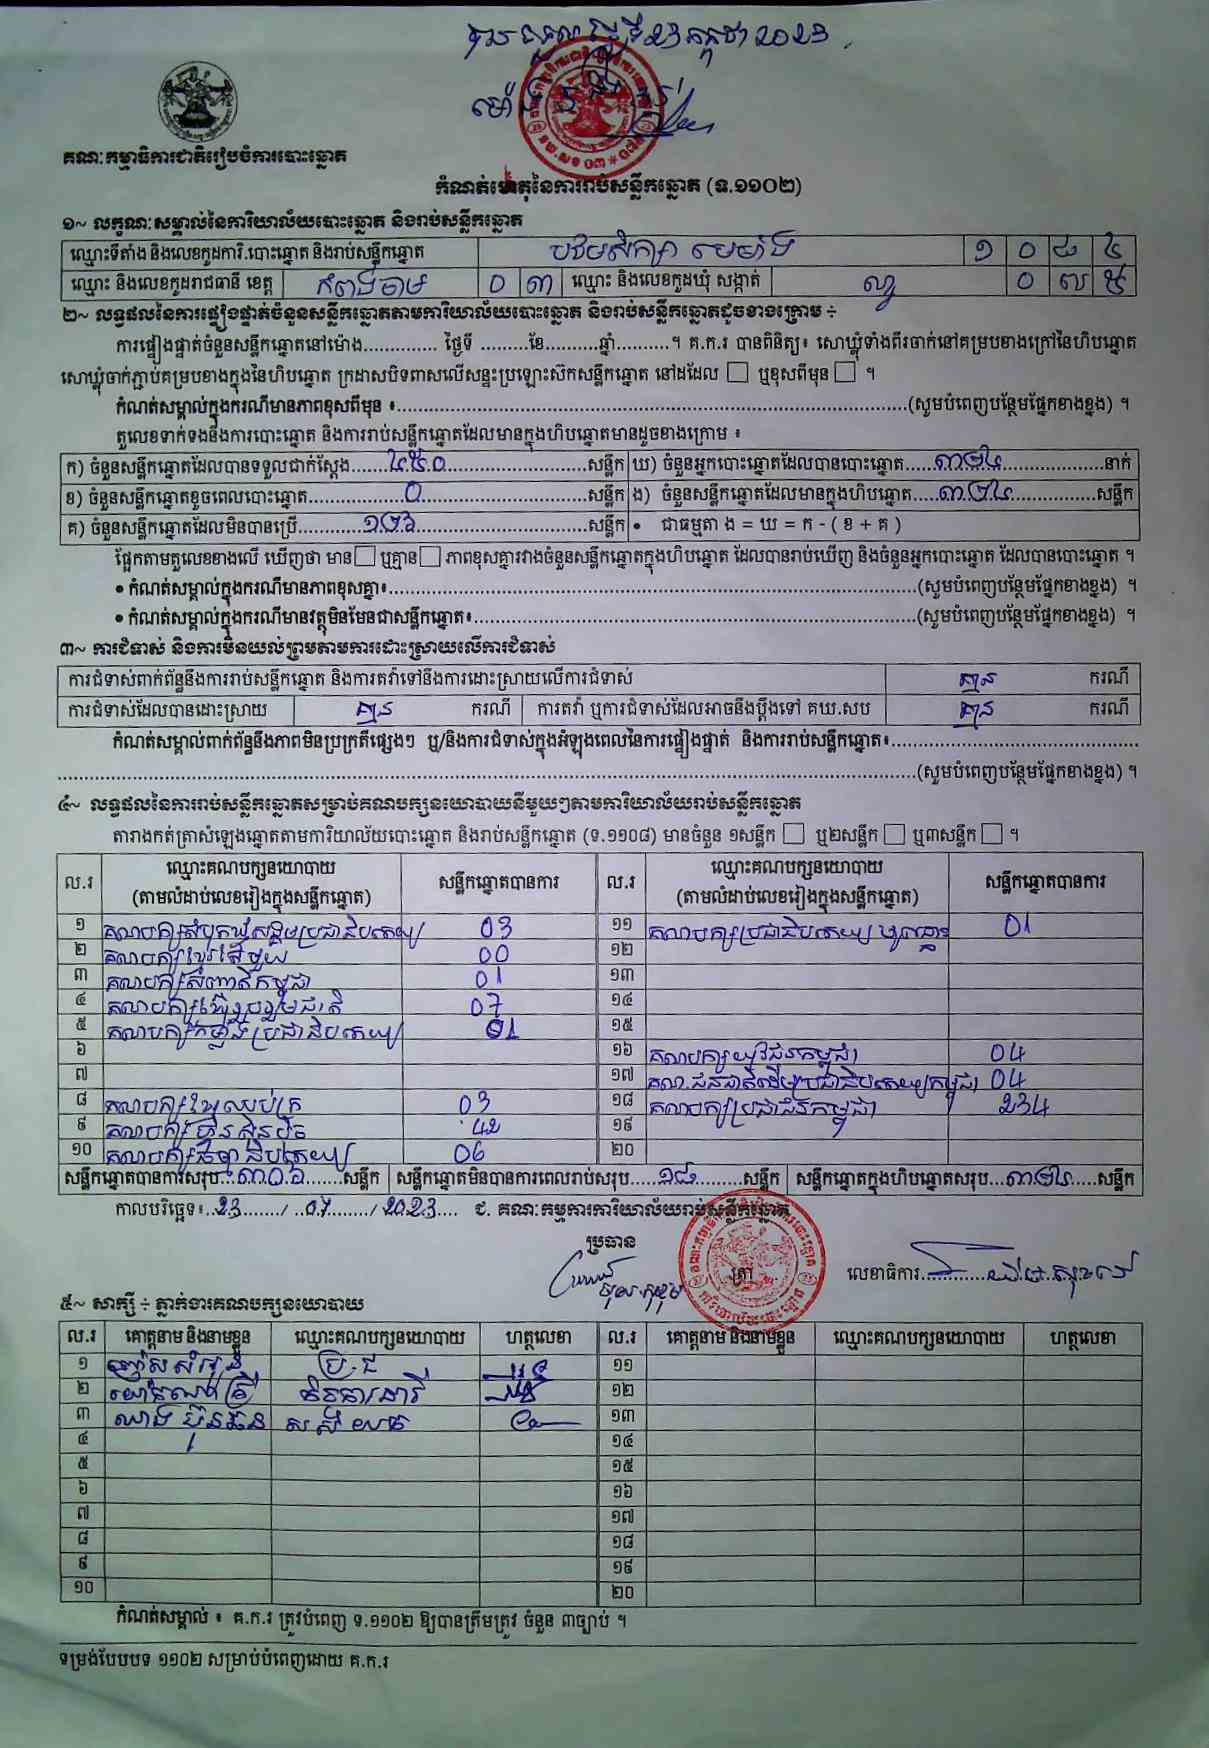 ថ្ងៃទី23 កក្កដា 2023
ម៉ោ
គណៈកម្មាធិការជាតិរៀបចំការបោះឆ្នោត
កំណត់ហេតុនៃការរាប់សន្លឹកឆ្នោត (ទ.១១០២)
១~ លក្ខណៈសម្គាល់នៃការិយាល័យបោះឆ្នោត និងរាប់សន្លឹកឆ្នោត
ឈ្មោះទីតាំង និងលេខកូដការិ.បោះឆ្នោត និងរាប់សន្លឹកឆ្នោត បឋមសិក្សា មេម៉ាង ១ ០ ៨ ៤
ឈ្មោះ និងលេខកូដរាជធានី ខេត្ត កំពង់ចាម ០ ៣ ឈ្មោះ និងលេខកូដឃុំ សង្កាត់ ល្វា ០ ៧ ៥
២~ លទ្ធផលនៃការផ្ទៀងផ្ទាត់ចំនួនសន្លឹកឆ្នោតតាមការិយាល័យបោះឆ្នោត និងរាប់សន្លឹកឆ្នោតដូចខាងក្រោម ÷
ការផ្ទៀងផ្ទាត់ចំនួនសន្លឹកឆ្នោតនៅម៉ោង.............. ថ្ងៃទី .........ខែ..........ឆ្នាំ..........។ គ.ក.រ បានពិនិត្យ៖ សោឃ្លុំទាំងពីរចាក់នៅគម្របខាងក្រៅនៃហិបឆ្នោត
សោឃ្លុំចាក់ភ្ជាប់គម្របខាងក្នុងនៃហិបឆ្នោត ក្រដាសបិទពាសលើសន្ទះប្រឡោះស៊កសន្លឹកឆ្នោត នៅដដែល ☐ ឬខុសពីមុន ☐ ។
កំណត់សម្គាល់ក្នុងករណីមានភាពខុសពីមុន ៖..........(សូមបំពេញបន្ថែមផ្នែកខាងខ្នង) ។
តួលេខទាក់ទងនឹងការបោះឆ្នោត និងការរាប់សន្លឹកឆ្នោតដែលមានក្នុងហិបឆ្នោតមានដូចខាងក្រោម ៖
ក) ចំនួនសន្លឹកឆ្នោតដែលបានទទួលជាក់ស្តែង.......៤៥០..........សន្លឹក ឃ) ចំនួនអ្នកបោះឆ្នោតដែលបានបោះឆ្នោត.....៣២៤..........នាក់
ខ) ចំនួនសន្លឹកឆ្នោតខូចពេលបោះឆ្នោត..........០..........សន្លឹក ង) ចំនួនសន្លឹកឆ្នោតដែលមានក្នុងហិបឆ្នោត.....៣២៤..........សន្លឹក
គ) ចំនួនសន្លឹកឆ្នោតដែលមិនបានប្រើ..........១២៦..........សន្លឹក • ជាធម្មតា ង = ឃ = ក - ( ខ + គ )
ផ្អែកតាមតួលេខខាងលើ ឃើញថា មាន ☐ ឬគ្មាន ☐ ភាពខុសគ្នារវាងចំនួនសន្លឹកឆ្នោតក្នុងហិបឆ្នោត ដែលបានរាប់ឃើញ និងចំនួនអ្នកបោះឆ្នោត ដែលបានបោះឆ្នោត ។
• កំណត់សម្គាល់ក្នុងករណីមានភាពខុសគ្នា៖..........(សូមបំពេញបន្ថែមផ្នែកខាងខ្នង) ។
• កំណត់សម្គាល់ក្នុងករណីមានវត្ថុមិនមែនជាសន្លឹកឆ្នោត៖..........(សូមបំពេញបន្ថែមផ្នែកខាងខ្នង) ។
៣~ ការជំទាស់ និងការមិនយល់ព្រមតាមការដោះស្រាយលើការជំទាស់
ការជំទាស់ពាក់ព័ន្ធនឹងការរាប់សន្លឹកឆ្នោត និងការតវ៉ាទៅនឹងការដោះស្រាយលើការជំទាស់ គ្មាន ករណី
ការជំទាស់ដែលបានដោះស្រាយ គ្មាន ករណី ការតវ៉ា ឬការជំទាស់ដែលអាចនឹងប្តឹងទៅ គឃ.សប គ្មាន ករណី
កំណត់សម្គាល់ពាក់ព័ន្ធនឹងភាពមិនប្រក្រតីផ្សេងៗ ឬ/និងការជំទាស់ក្នុងអំឡុងពេលនៃការផ្ទៀងផ្ទាត់ និងការរាប់សន្លឹកឆ្នោត៖..........
..........(សូមបំពេញបន្ថែមផ្នែកខាងខ្នង) ។
៤~ លទ្ធផលនៃការរាប់សន្លឹកឆ្នោតសម្រាប់គណបក្សនយោបាយនីមួយៗតាមការិយាល័យរាប់សន្លឹកឆ្នោត
តារាងកត់ត្រាសំឡេងឆ្នោតតាមការិយាល័យបោះឆ្នោត និងរាប់សន្លឹកឆ្នោត (ទ.១១០៨) មានចំនួន ១សន្លឹក ☐ ឬ២សន្លឹក ☐ ឬ៣សន្លឹក ☐ ។
ល.រ ឈ្មោះគណបក្សនយោបាយ សន្លឹកឆ្នោតបានការ ល.រ ឈ្មោះគណបក្សនយោបាយ សន្លឹកឆ្នោតបានការ
(តាមលំដាប់លេខរៀងក្នុងសន្លឹកឆ្នោត) (តាមលំដាប់លេខរៀងក្នុងសន្លឹកឆ្នោត)
១ គណបក្សសំបុកឃ្មុំសង្គមប្រជាធិបតេយ្យ 03 ១១ គណបក្សប្រជាធិបតេយ្យមូលដ្ឋាន 01
២ គណបក្សខ្មែរតែមួយ 00 ១២
៣ គណបក្សសញ្ជាតិកម្ពុជា 01 ១៣
៤ គណបក្សខ្មែររួបរួមជាតិ 07 ១៤
៥ គណបក្សកម្លាំងប្រជាធិបតេយ្យ 01 ១៥
៦ ១៦ គណបក្សយុវជនកម្ពុជា 04
៧ ១៧ គណ.ជនជាតិដើមប្រជាធិបតេយ្យកម្ពុជា 04
៨ គណបក្សខ្មែរឈប់ក្រ 03 ១៨ គណបក្សប្រជាជនកម្ពុជា 234
៩ គណបក្សហ៊្វុនស៊ិនប៉ិច 42 ១៩
១០ គណបក្សធម្មាធិបតេយ្យ 06 ២០
សន្លឹកឆ្នោតបានការសរុប...៣០៦.......សន្លឹក សន្លឹកឆ្នោតមិនបានការពេលរាប់សរុប.....១៨.........សន្លឹក សន្លឹកឆ្នោតក្នុងហិបឆ្នោតសរុប...៣២៤.....សន្លឹក
កាលបរិច្ឆេទ៖..23......../ ..07......../ 2023.... ជ. គណៈកម្មការការិយាល័យរាប់សន្លឹកឆ្នោត
ប្រធាន
ត្រា
លេខាធិការ............
៥~ សាក្សី ÷ ភ្នាក់ងារគណបក្សនយោបាយ
ល.រ គោត្តនាម និងនាមខ្លួន ឈ្មោះគណបក្សនយោបាយ ហត្ថលេខា ល.រ គោត្តនាម និងនាមខ្លួន ឈ្មោះគណបក្សនយោបាយ ហត្ថលេខា
១ ប្រ.ជ ១១
២ ១២
៣ ១៣
៤ ១៤
៥ ១៥
៦ ១៦
៧ ១៧
៨ ១៨
៩ ១៩
១០ ២០
កំណត់សម្គាល់ ៖ គ.ក.រ ត្រូវបំពេញ ទ.១១០២ ឱ្យបានត្រឹមត្រូវ ចំនួន ៣ច្បាប់ ។
ទម្រង់បែបបទ ១១០២ សម្រាប់បំពេញដោយ គ.ក.រ